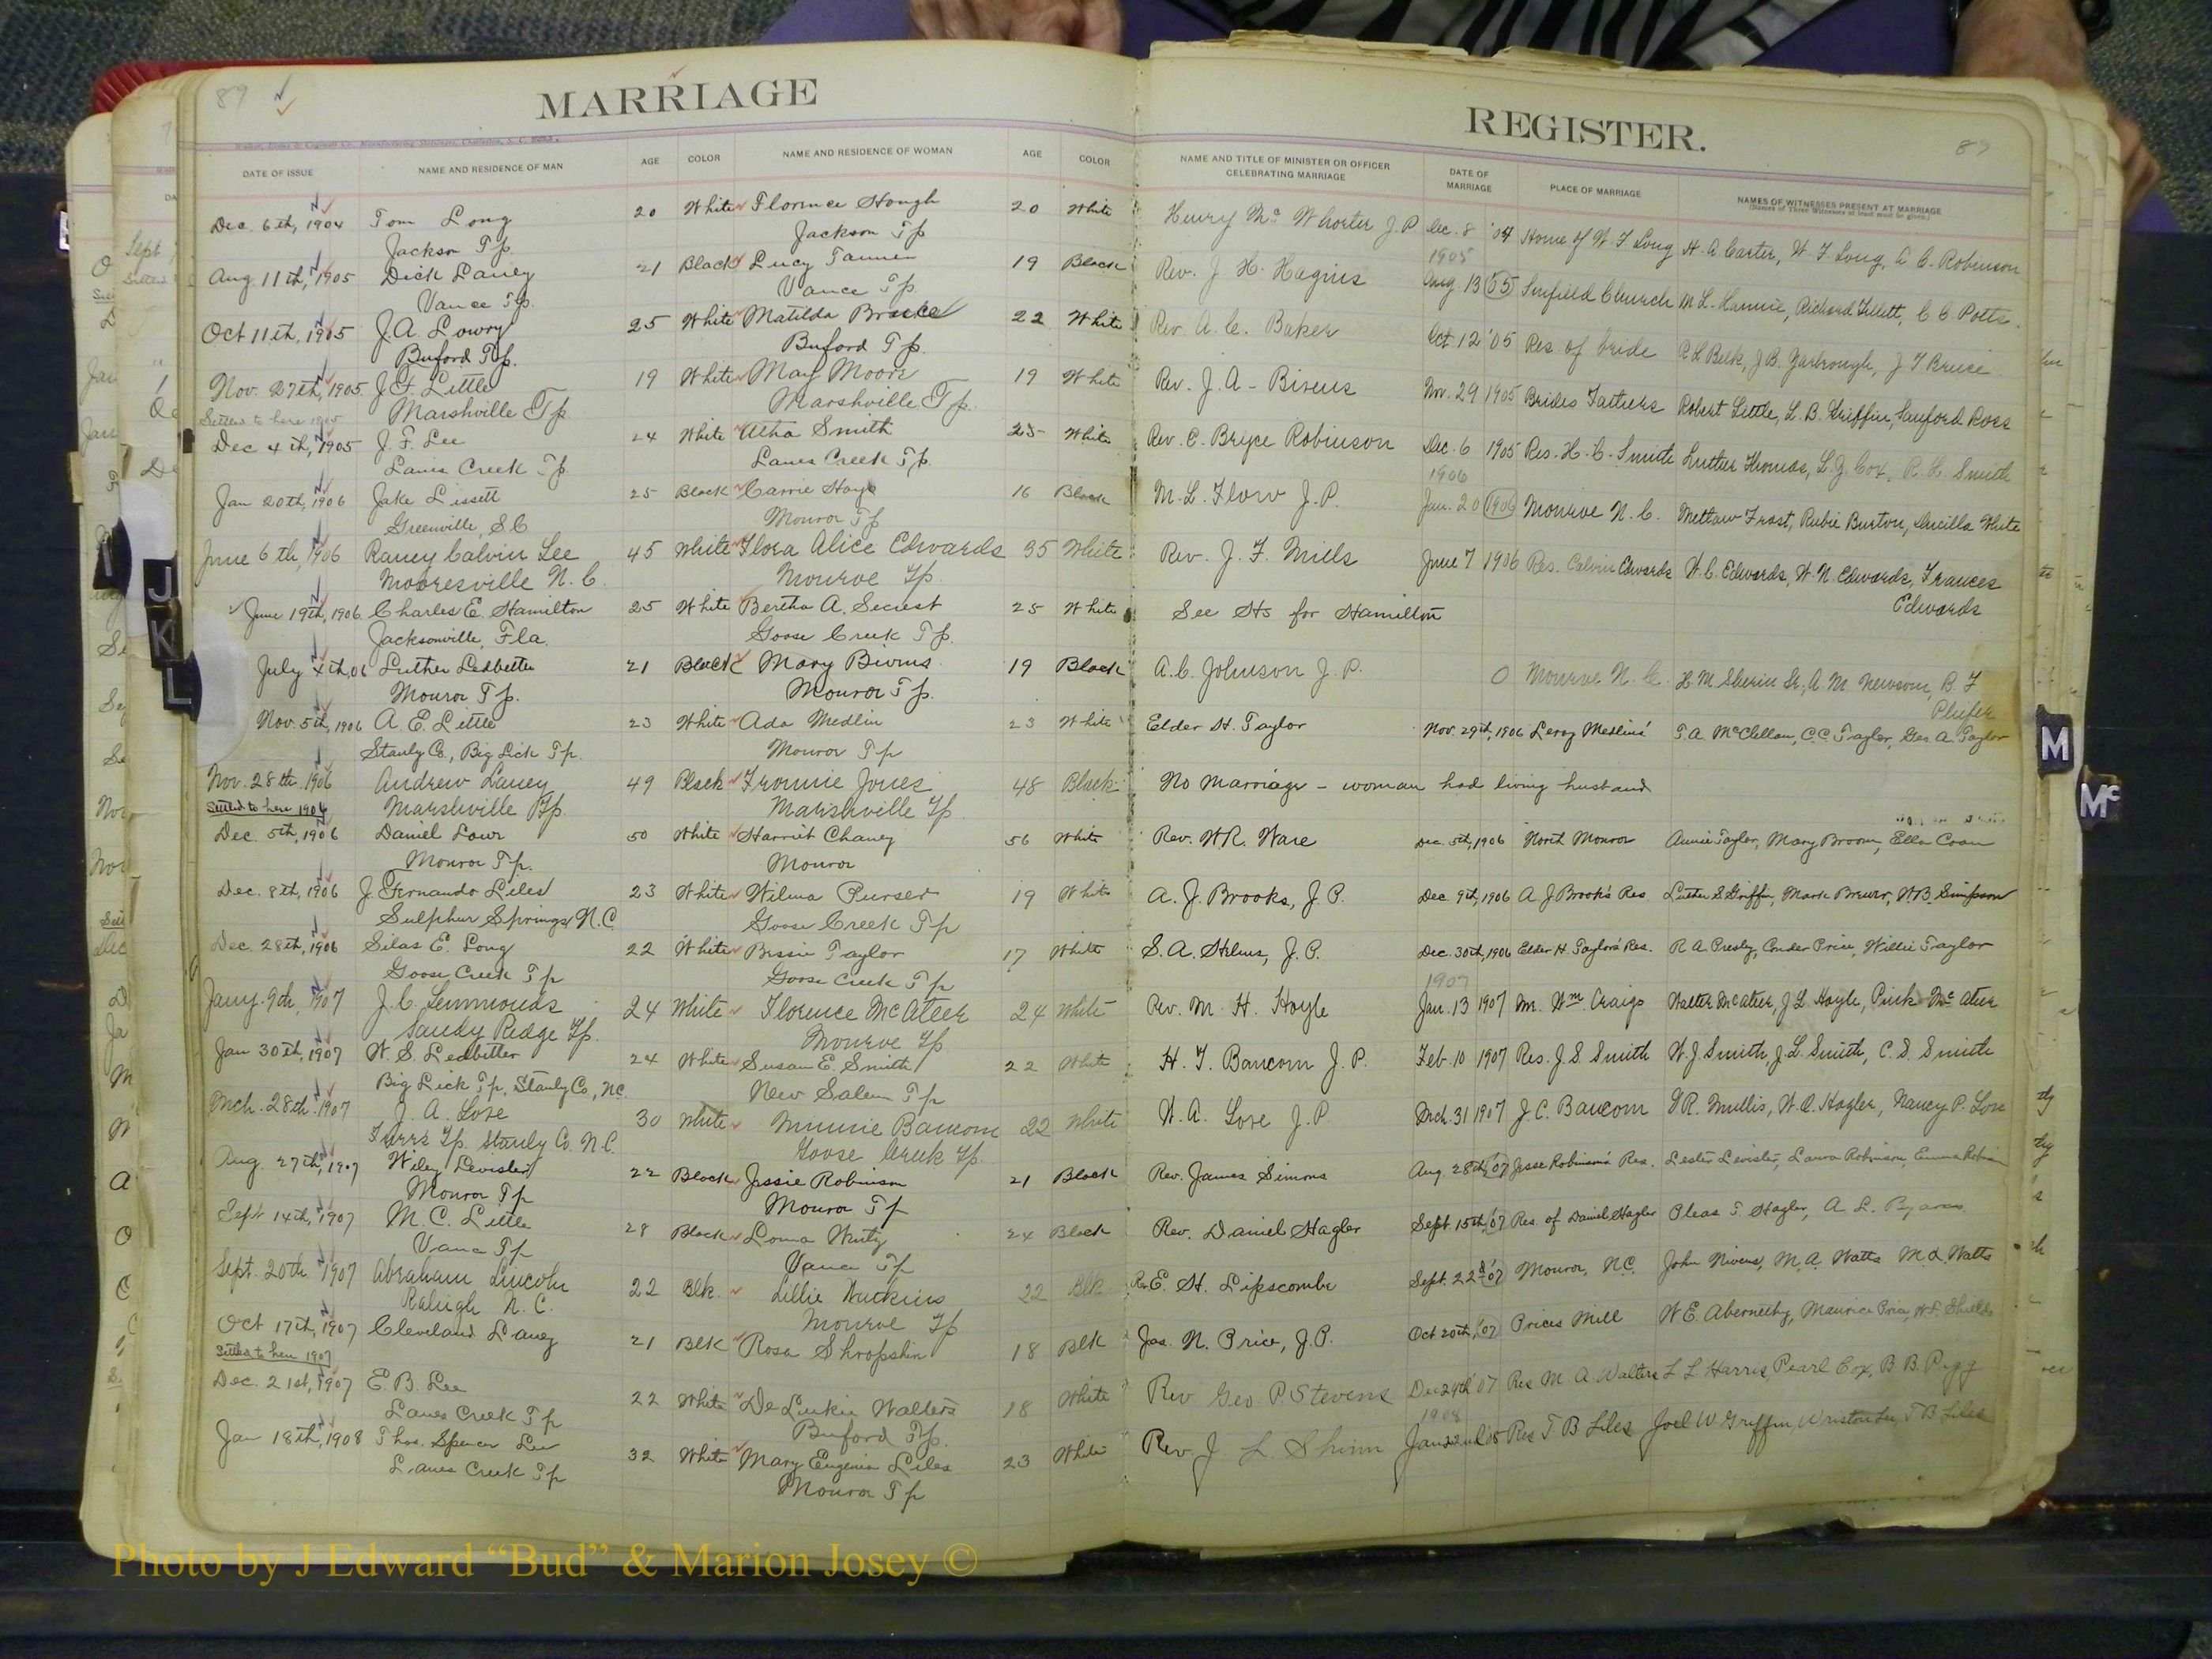 89
MARRIAGE
REGISTER.
89
DATE OF ISSUE NAME AND RESIDENCE OF MAN AGE COLOR NAME AND RESIDENCE OF WOMAN AGE COLOR NAME AND TITLE OF MINISTER OR OFFICER CELEBRATING MARRIAGE DATE OF MARRIAGE PLACE OF MARRIAGE NAMES OF WITNESSES PRESENT AT MARRIAGE
(Names of Three Witnesses at least must be given.)
Dec. 6th, 1904 Tom Long 20 White Florence Hough 20 White Henry Mc Whorter J.P. Dec. 8 '04 Home of W. F. Long H. A. Carter, W. F. Long, A. C. Robinson
Jackson Tp. Jackson Tp
1905
Aug 11th, 1905 Dick Laney 21 Black Lucy Tanner 19 Black Rev. J. H. Hagins Aug. 13 05 Church M. L. Richard Tillett, C C Potts.
Vance Tp. Vance Tp.
Oct 11th, 1905 J. A. Lowry 25 White Matilda 22 White Rev. A. C. Baker Oct. 12 '05 Res. of bride Belk, J. B. Yarbrough, J T Bruce
Buford Tp. Buford Tp.
Nov. 27th, 1905 Little 19 White May Moore 19 White Rev. J. A. Bivens Nov. 29 1905 Brides Fathers Robert Little, L. B. Griffin, Sanford Ross
Settled to here 1905 Marshville Tp. Marshville Tp.
Dec 4th, 1905 J. F. Lee 24 White Smith 25 White Rev. C. Bryce Robinson Dec. 6 1905 Res. H. C. Smith Luther Thomas, L. J. Cox, R. H. Smith
Lanes Creek Tp. Lanes Creek Tp.
1906
Jan 20th, 1906 Jake Lissett 25 Black Carrie Hays 16 Black M. L. Flow J. P. Jan. 20 1906 Monroe N. C. Frost, Rubie Burton, White
Greenville, S.C. Monroe Tp
June 6th, 1906 Raney Calvin Lee 45 White Flora Alice Edwards 35 White Rev. J. F. Mills June 7 1906 Res. Calvin Edwards W. C. Edwards, W. N. Edwards, Frances
Mooresville N. C. Monroe Tp. Edwards
June 19th, 1906 Charles E. Hamilton 25 White Bertha A. Secrest 25 White See Hs for Hamilton
Jacksonville, Fla. Goose Creek Tp.
July 4th, 06 Luther Ledbetter 21 Black Mary Bivins 19 Black A. C. Johnson J. P. Monroe N. C. A. M. Newsom, B. F
Monroe Tp. Monroe Tp. Phifer
Nov. 5th, 1906 A. E. Little 23 White Ada Medlin 23 White Elder H. Taylor Nov. 29th, 1906 Leroy Medlins' T. A. McClellan, C.C. Taylor, Geo. A. Taylor
Stanly Co., Big Lick Tp. Monroe Tp
Nov. 28th 1906 Andrew Laney 49 Black Fronnie Jones 48 Black No Marriage - woman had living husband
Settled to here Marshville Tp. Marshville Tp.
Dec. 5th, 1906 Daniel Lowr 50 White Harriet Chaney 56 White Rev. W. R. Ware Dec. 5th, 1906 North Monroe Annie Taylor, Mary Broom, Ella Coan
Monroe Tp. Monroe
Dec. 8th, 1906 J. Fernando Liles 23 White Wilma Purser 19 White A. J. Brooks, J. P. Dec 9th, 1906 A J Brook's Res. Luther S. Griffin, Mark Brewer, Simpson
Sulphur Springs N.C. Goose Creek Tp
Dec. 28th, 1906 Silas E. Long 22 White Bessie Taylor 17 White S. A. Helms, J. P. Dec. 30th, 1906 Elder H. Taylors' Res. R A Presly, Conder Price, Willie Taylor
Goose Creek Tp Goose Creek Tp
1907
Jany. 9th, 1907 J. C. Lemmonds 24 White Florence McAteer 24 White Rev. M. H. Hoyle Jan. 13 1907 Mr. Wm. Craigs Walter McAteer, J L Hoyle, Pink McAteer
Sandy Ridge Tp. Monroe Tp.
Jan 30th, 1907 W. S. Ledbetter 24 White Susan E. Smith 22 White H. T. Baucom J. P. Feb. 10 1907 Res. J. S. Smith W. J. Smith, J. L. Smith, C. S. Smith
Big Lick Tp, Stanly Co., N.C. New Salem Tp
Mch. 28th 1907 J. A. Love 30 White Minnie Baucom 22 White W. A. Love J. P Mch. 31 1907 J. C. Baucom Mullis, Hagler, Nancy P. Love
Furrs Tp. Stanly Co. N. C. Goose Creek Tp.
Aug. 27th, 1907 Wiley 22 Black Jessie Robinson 21 Black Rev. James Simons Aug. 28th, 07 Jesse Robinson's Res. Lester Robinson, Emma
Monroe Tp Monroe Tp
Sept 14th, 1907 M. C. Little 28 Black 24 Black Rev. Daniel Hagler Sept. 15th, 07 Res. of Daniel Hagler Pleas T. Hagler, A. L.
Vance Tp Vance Tp
Sept. 20th 1907 Abraham Lincoln 22 Blk. Lillie 22 Blk Rev E. H. Lipscombe Sept. 22 '07 Monroe, N.C. John Nivens, M. A. Watts M. L. Watts
Raleigh N. C. Monroe Tp
Oct 17th, 1907 Cleveland Laney 21 Blk Rosa Shropshire 18 Blk Jas. N. Price, J.P. Oct 20th, 07 Prices Mill W. E. Abernethy, Maurice Price
Settled to here 1907
Dec. 21st, 1907 E. B. Lee 22 White De Luckie Walters 18 White Rev Geo. P. Stevens Dec 24th 07 Res M. A. Walters L L Harris, Pearl Cox, B B Pigg
Lanes Creek Tp Buford Tp.
1908
Jan 18th, 1908 Thos. Spencer Lee 32 White Mary Eugenia Liles 23 White Rev. J L. Shinn Jan 22nd Res T B Liles Joel W Griffin, T B Liles
Lanes Creek Tp Monroe Tp
J
K
L
M
Mc
Photo by J Edward “Bud” & Marion Josey ©